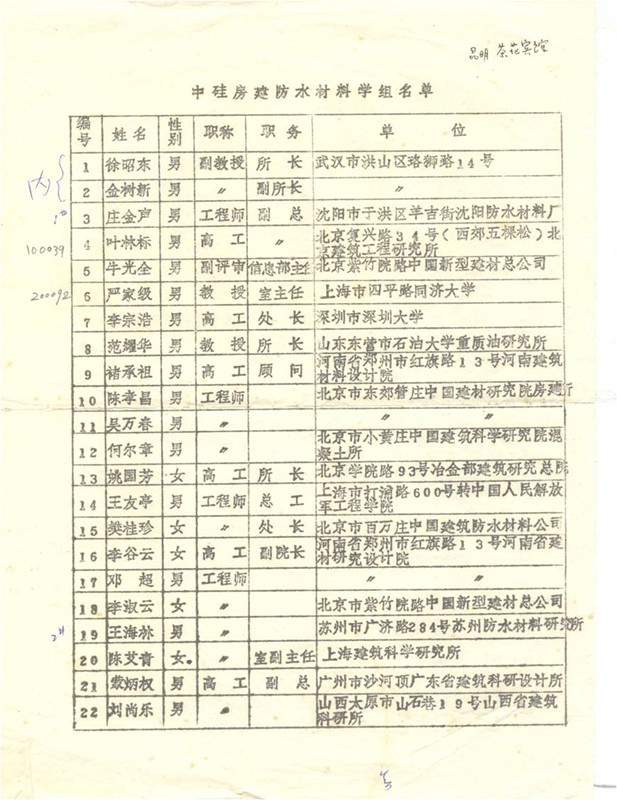 昆明 茶花宾馆
中硅房建防水材料学组名单
编号 姓名 性别 职称 职务 单位
内
1 徐昭东 男 副教授 所长 武汉市洪山区珞狮路14号
2 金树新 男 〃 副所长 〃
3 庄金声 男 工程师 副总 沈阳市于洪区羊吉街沈阳防水材料厂
100039
4 叶林标 男 高工 〃 北京复兴路34号(西郊五棵松)北
京建筑工程研究所
5 牛光全 男 副评审 信息部主任 北京紫竹院路中国新型建材总公司
200092
6 严家级 男 教授 室主任 上海市四平路同济大学
7 李宗浩 男 高工 处长 深圳市深圳大学
8 范耀华 男 教授 所长 山东东营市石油大学重质油研究所
9 褚承祖 男 高工 顾问 河南省郑州市红旗路13号河南建筑
材料设计院
10 陈孝昌 男 工程师 北京市东郊管庄中国建材研究院房建所
11 吴万春 男 〃 〃 〃
12 何尔章 男 〃 北京市小黄庄中国建筑科学研究院混
凝土所
13 姚国芳 女 高工 所长 北京学院路93号冶金部建筑研究总院
14 王友亭 男 工程师 总工 上海市打浦路600号转中国人民解放
军工程学院
15 樊桂珍 女 〃 处长 北京市百万庄中国建筑防水材料公司
16 李谷云 女 高工 副院长 河南省郑州市红旗路13号河南省建
材研究设计院
17 邓超 男 工程师 〃 〃
18 李淑云 女 〃 北京市紫竹院路中国新型建材总公司
19 王海林 男 〃 苏州市广济路284号苏州防水材料研究所
20 陈艾青 女 〃 室副主任 上海建筑科学研究所
21 炳权 男 高工 副总 广州市沙河顶广东省建筑科研设计所
22 刘尚乐 男 〃 山西太原市山石巷19号山西省建筑
科研所